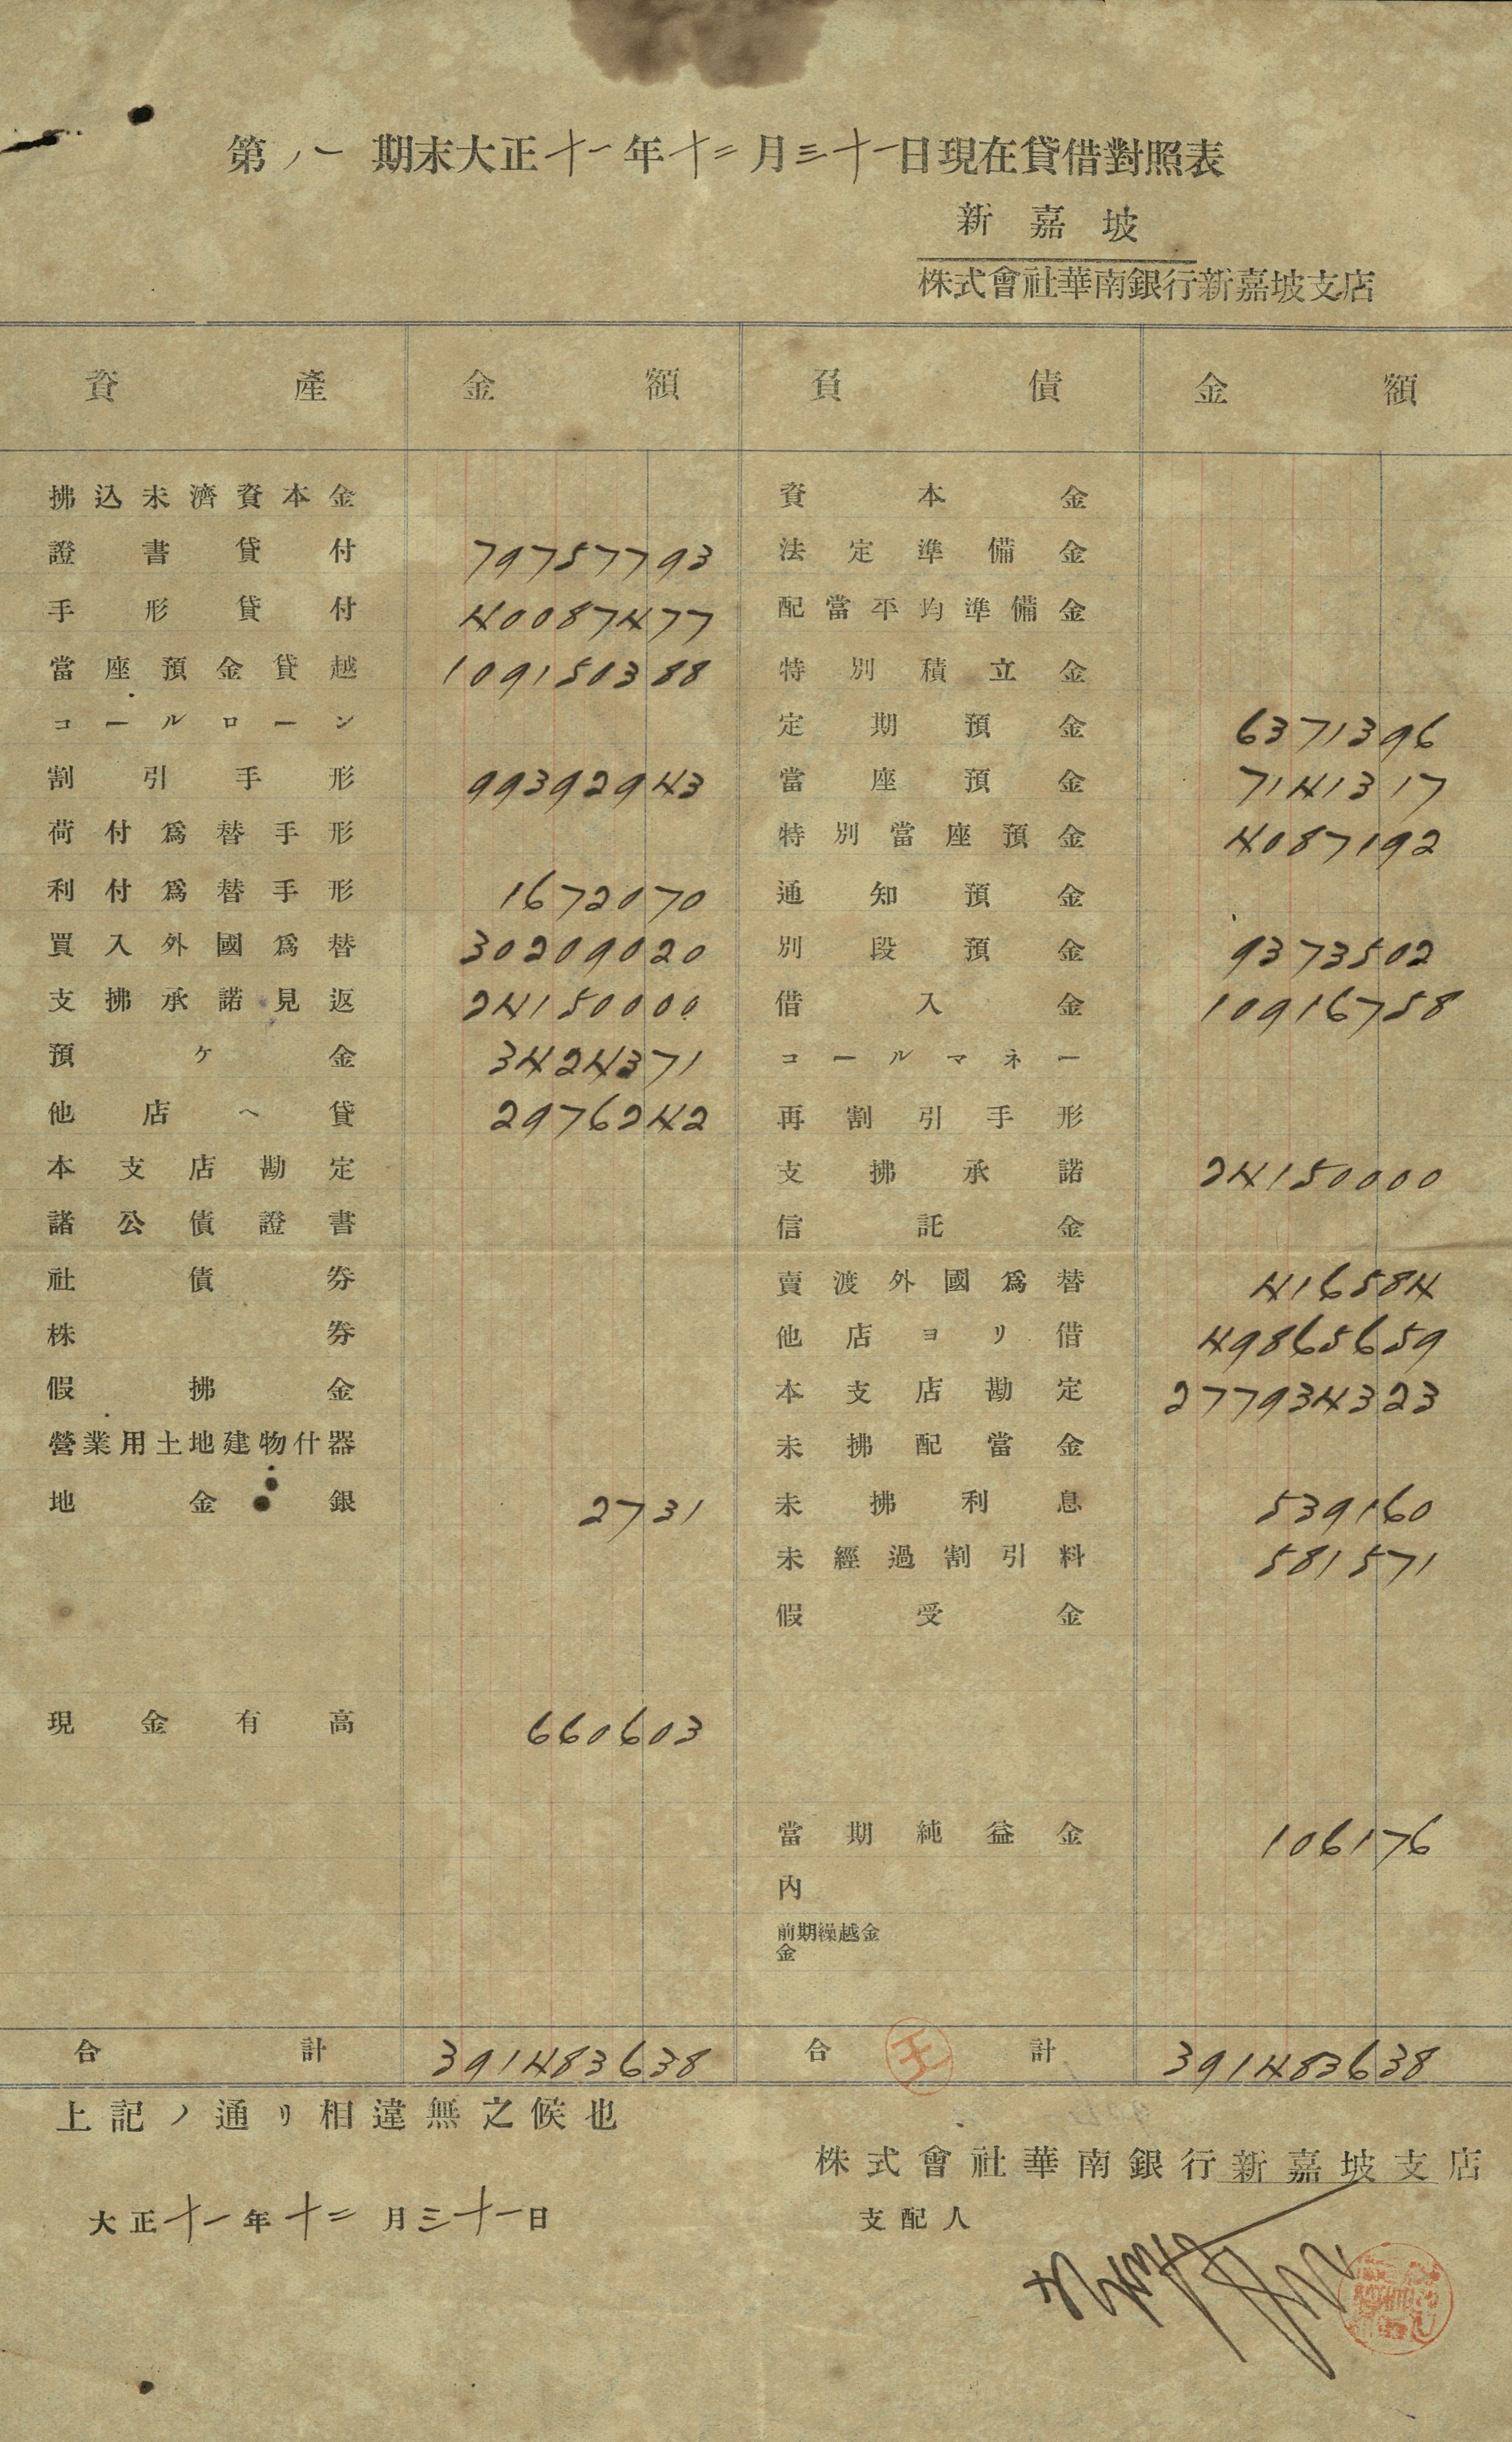 第八期末大正十一年十二月三十一日現在貸借對照表
新嘉坡
株式會社華南銀行新嘉坡支店
資產 金額 負債 金額
拂込未濟資本金 資本金
證書貸付 79757793 法定準備金
手形貸付 40087477 配當平均準備金
當座預金貸越 109150388 特別積立金
コールローン 定期預金 6371396
割引手形 99392943 當座預金 7141317
荷付爲替手形 特別當座預金 4087192
利付爲替手形 1672070 通知預金
買入外國爲替 30209020 別段預金 9373502
支拂承諾見返 24150000 借入金 10916758
預ケ金 3424371 コールマネー
他店ヘ貸 2976242 再割引手形
本支店勘定 支拂承諾 24150000
諸公債證書 信託金
社債券 賣渡外國爲替 416584
株券 他店ヨリ借 49865659
假拂金 本支店勘定 277934323
營業用土地建物什器 未拂配當金
地金銀 2731 未拂利息 539160
未經過割引料 581571
假受金
現金有高 660603
當期純益金 106176
内
前期繰越金
金
合計 391483638 合計 391483638
王
上記ノ通リ相違無之候也
株式會社華南銀行新嘉坡支店
大正十一年十二月三十一日 支配人